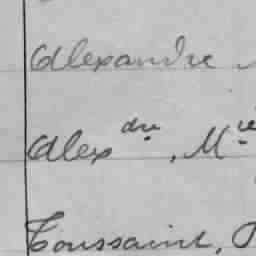 Alexandre
Alexdre, Mie
Toussaint,